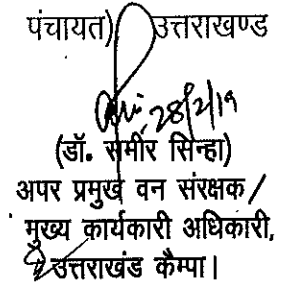 पंचायत) उत्तराखण्ड
28/2/19
(डॉ. समीर सिन्हा)
अपर प्रमुख वन संरक्षक/
मुख्य कार्यकारी अधिकारी,
उत्तराखंड कैम्पा।